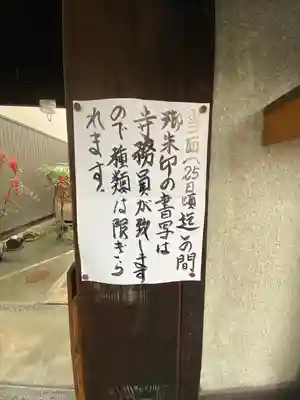 当面(25日頃迄)の間
御朱印の書写は
寺務員が致します
ので種類は限ぎら
れます。